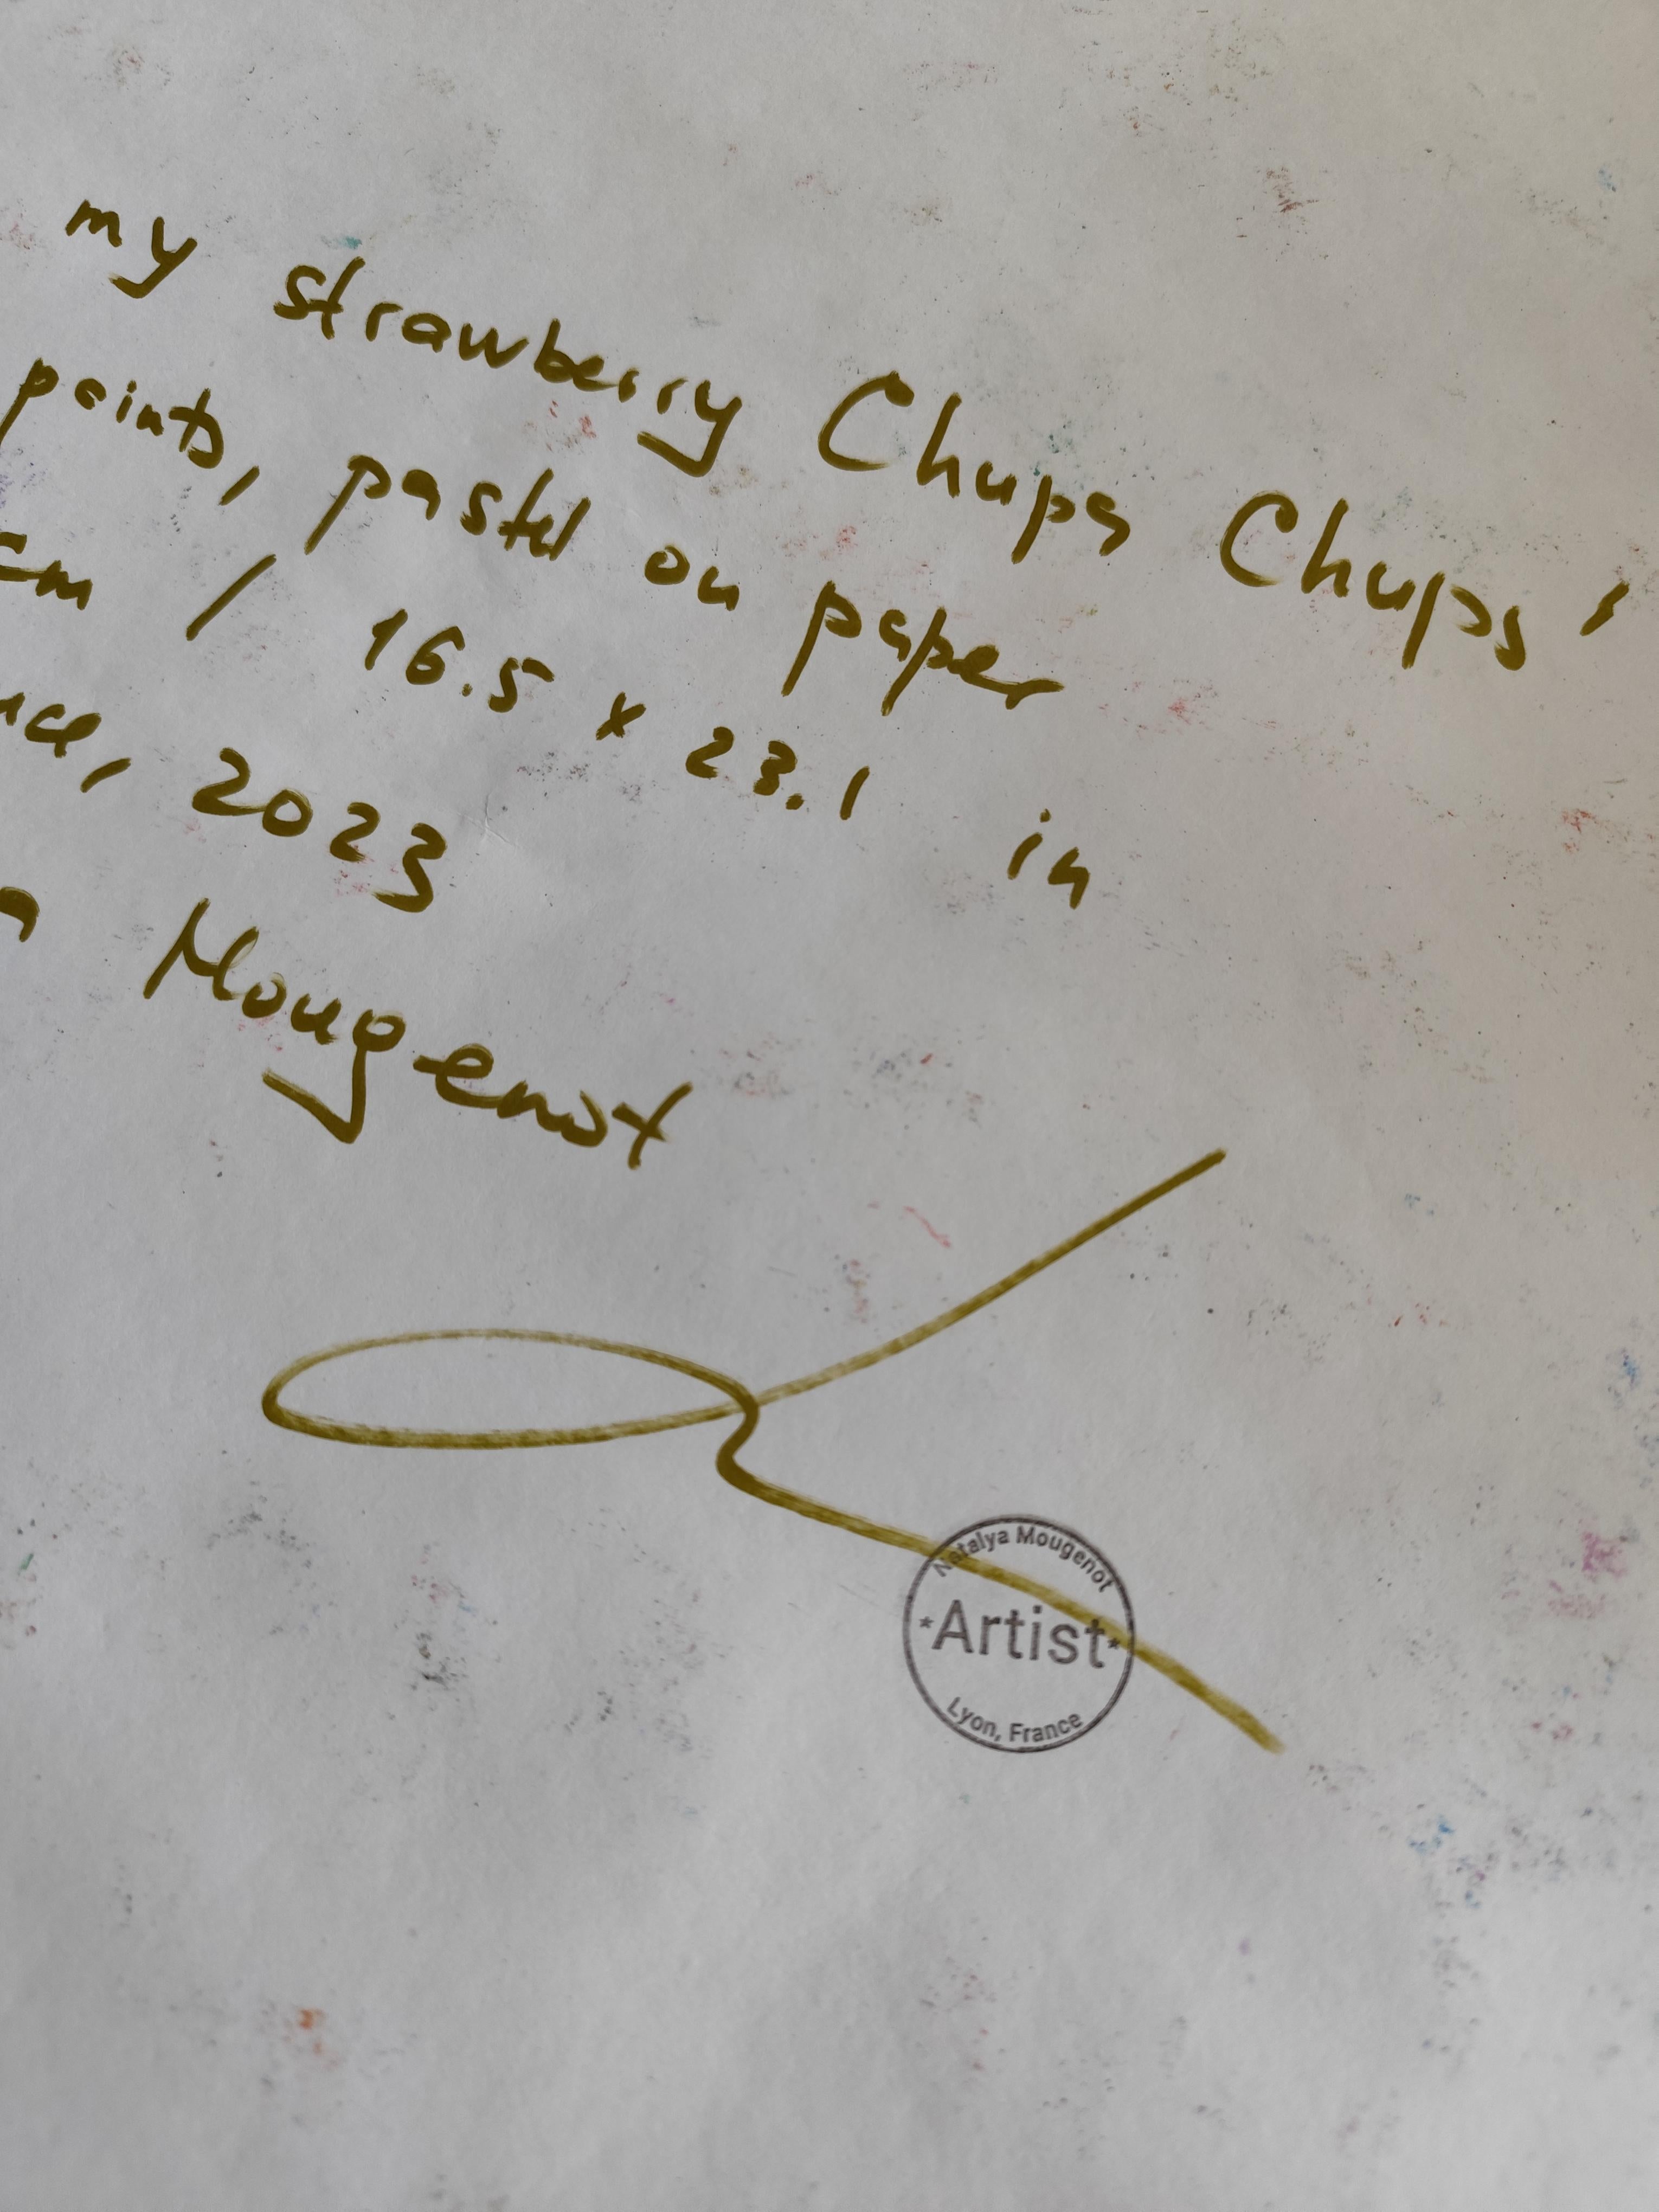 my strawberry Chups Chups'
paints, pastel on paper
cm / 16.5 x 23.1 in
, 2023
Mougenot
Natalya Mougenot
*Artist*
Lyon, France